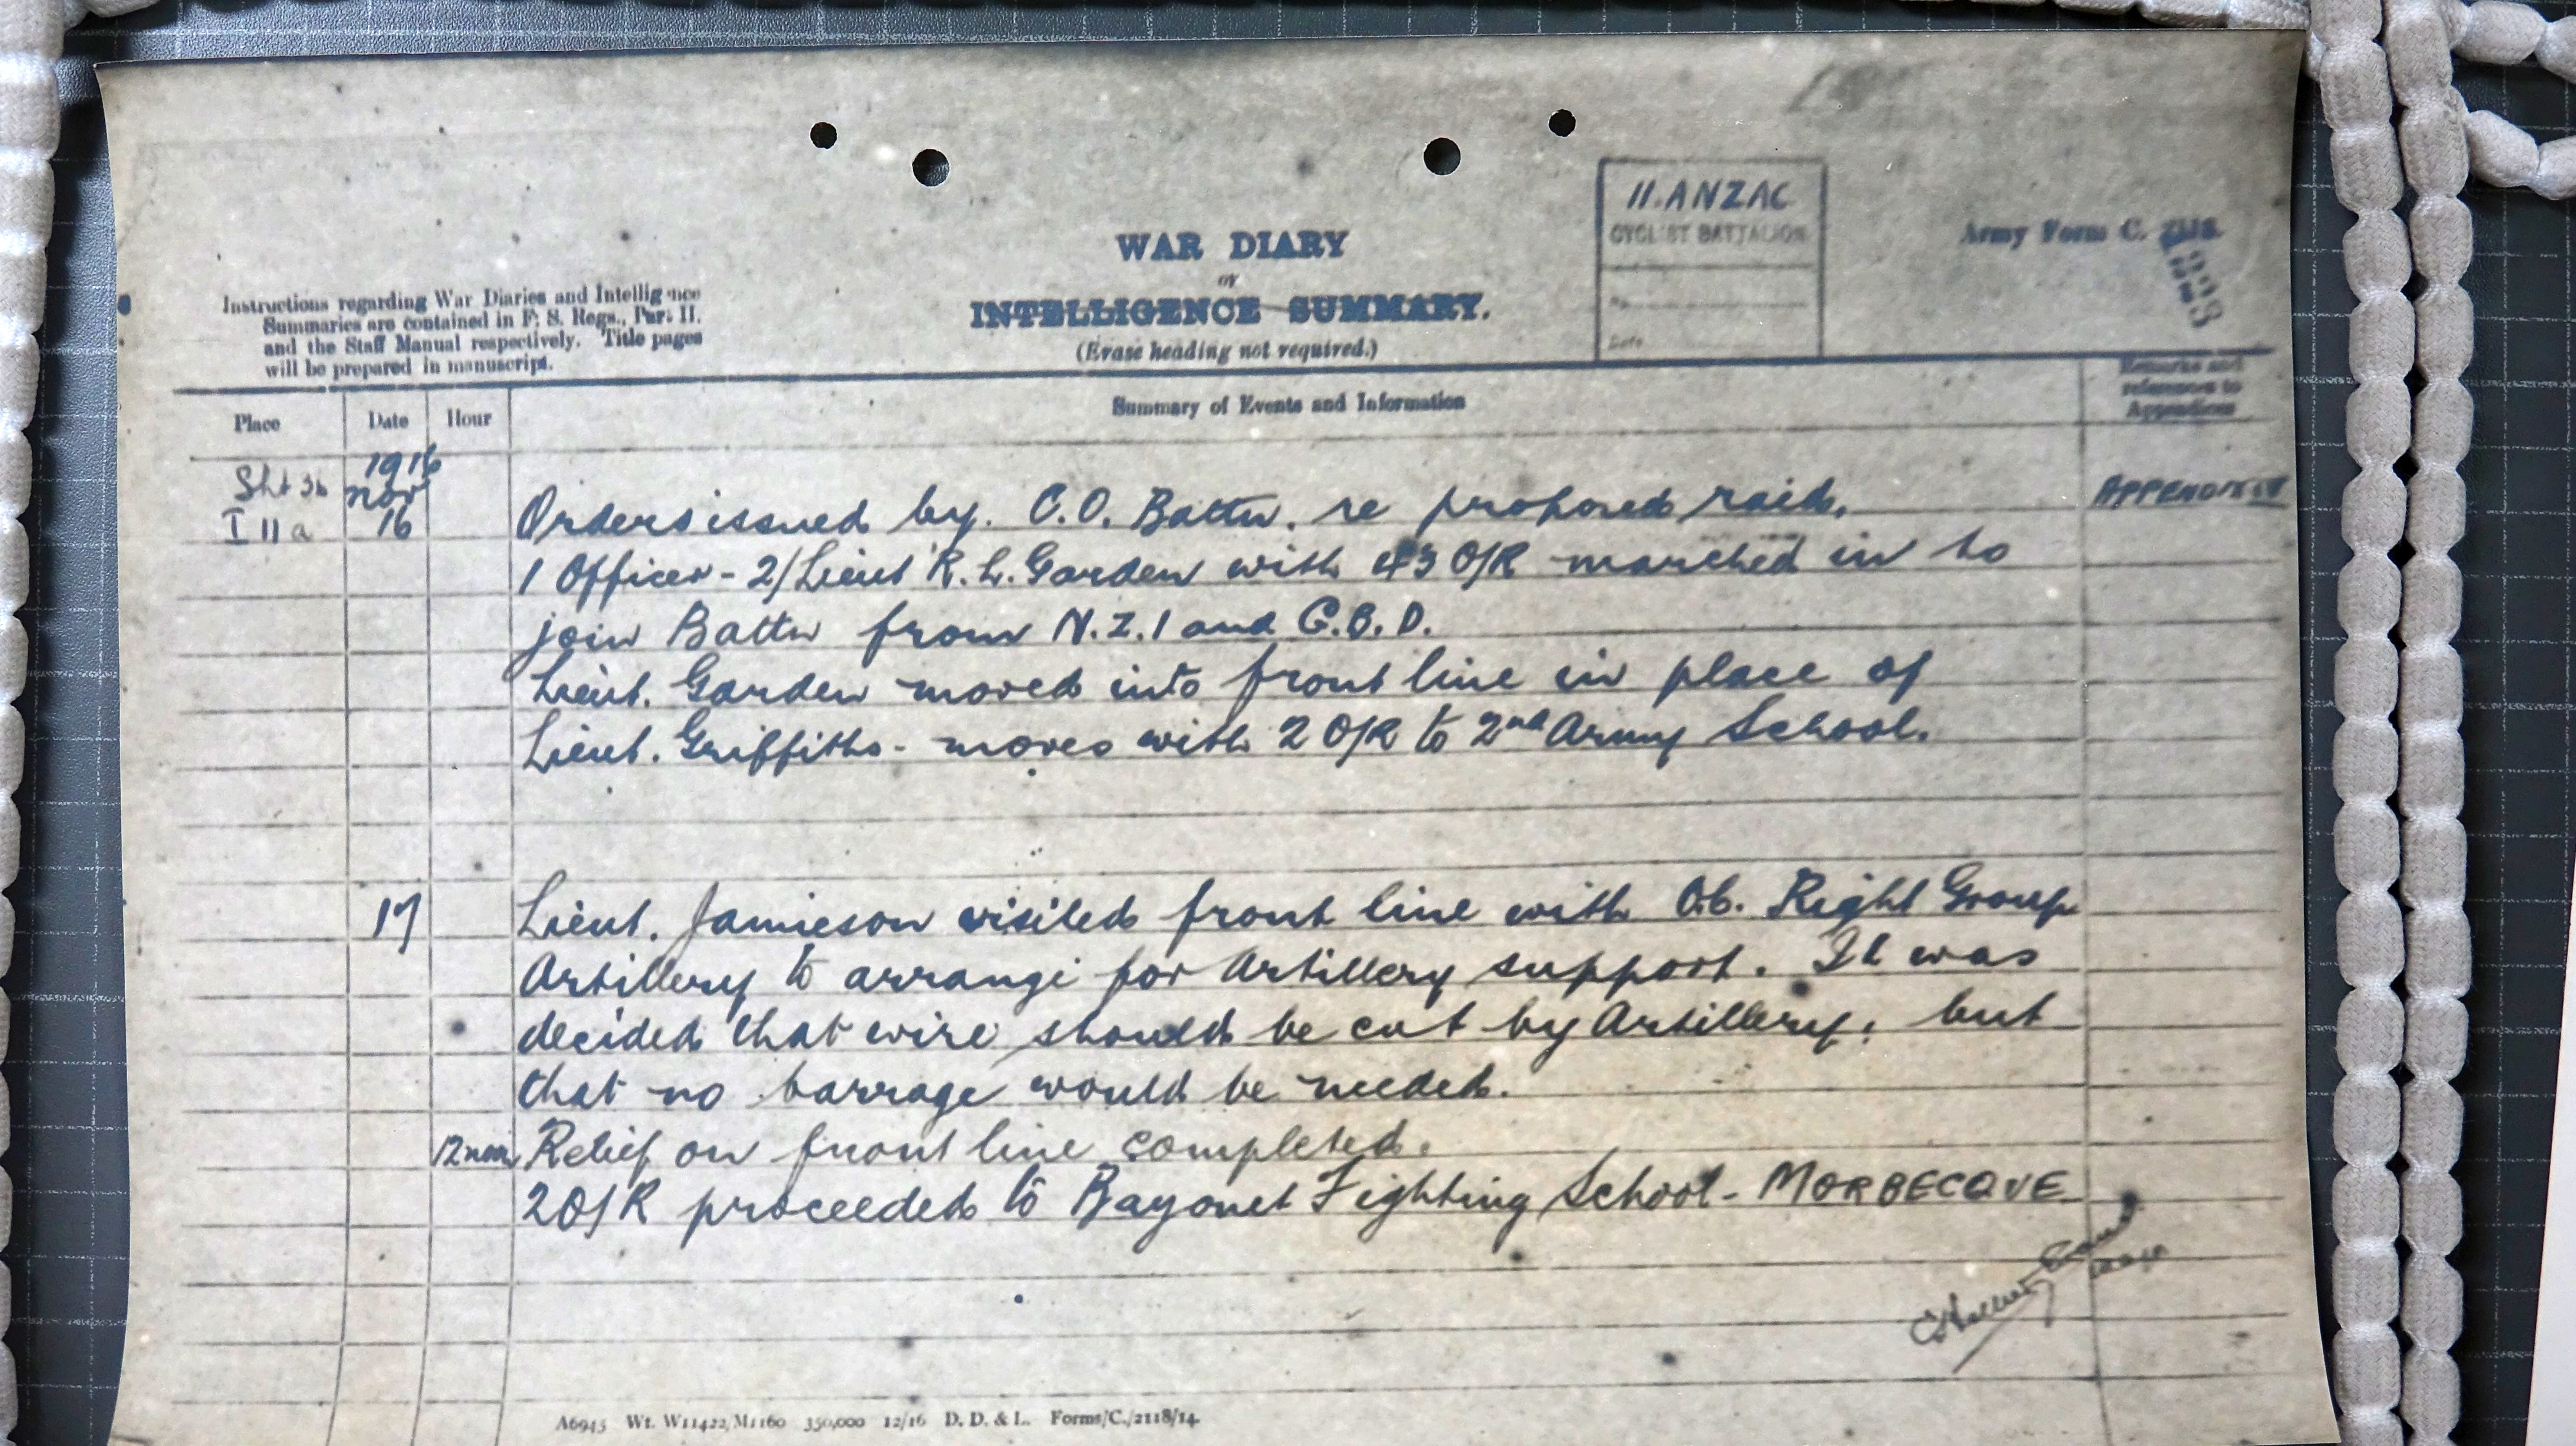 II.ANZAC
CYCLIST BATTALION
Army Form C. 2118.
WAR DIARY
or
INTELLIGENCE SUMMARY.
(Erase heading not required.)
Instructions regarding War Diaries and Intelligence
Summaries are contained in F. S. Regs., Part II.
and the Staff Manual respectively. Title pages
will be prepared in manuscript.
Date
Place Date Hour Summary of Events and Information Remarks and
references to
Appendices
Sht 36 1916
Nov
I 11 a 16 Orders issued by. C.O. Battn. re proposed raid. APPENDIX
1 Officer - 2/Lieut R.L. Garden with 43 O/R marched in to
join Battn from N.Z.I and G.B.D.
Lieut. Garden moved into front line in place of
Lieut. Griffiths - moves with 2 O/R to 2nd Army School.
17 Lieut. Jamieson visited front line with O.C. Right Group
Artillery to arrange for Artillery support. It was
decided that wire should be cut by Artillery, but
that no barrage would be needed.
12 noon Relief on front line completed.
2 O/R proceeded to Bayonet Fighting School - MORBECQUE
A6945 Wt. W11422/M1160 350,000 12/16 D. D. & L. Forms/C./2118/14.